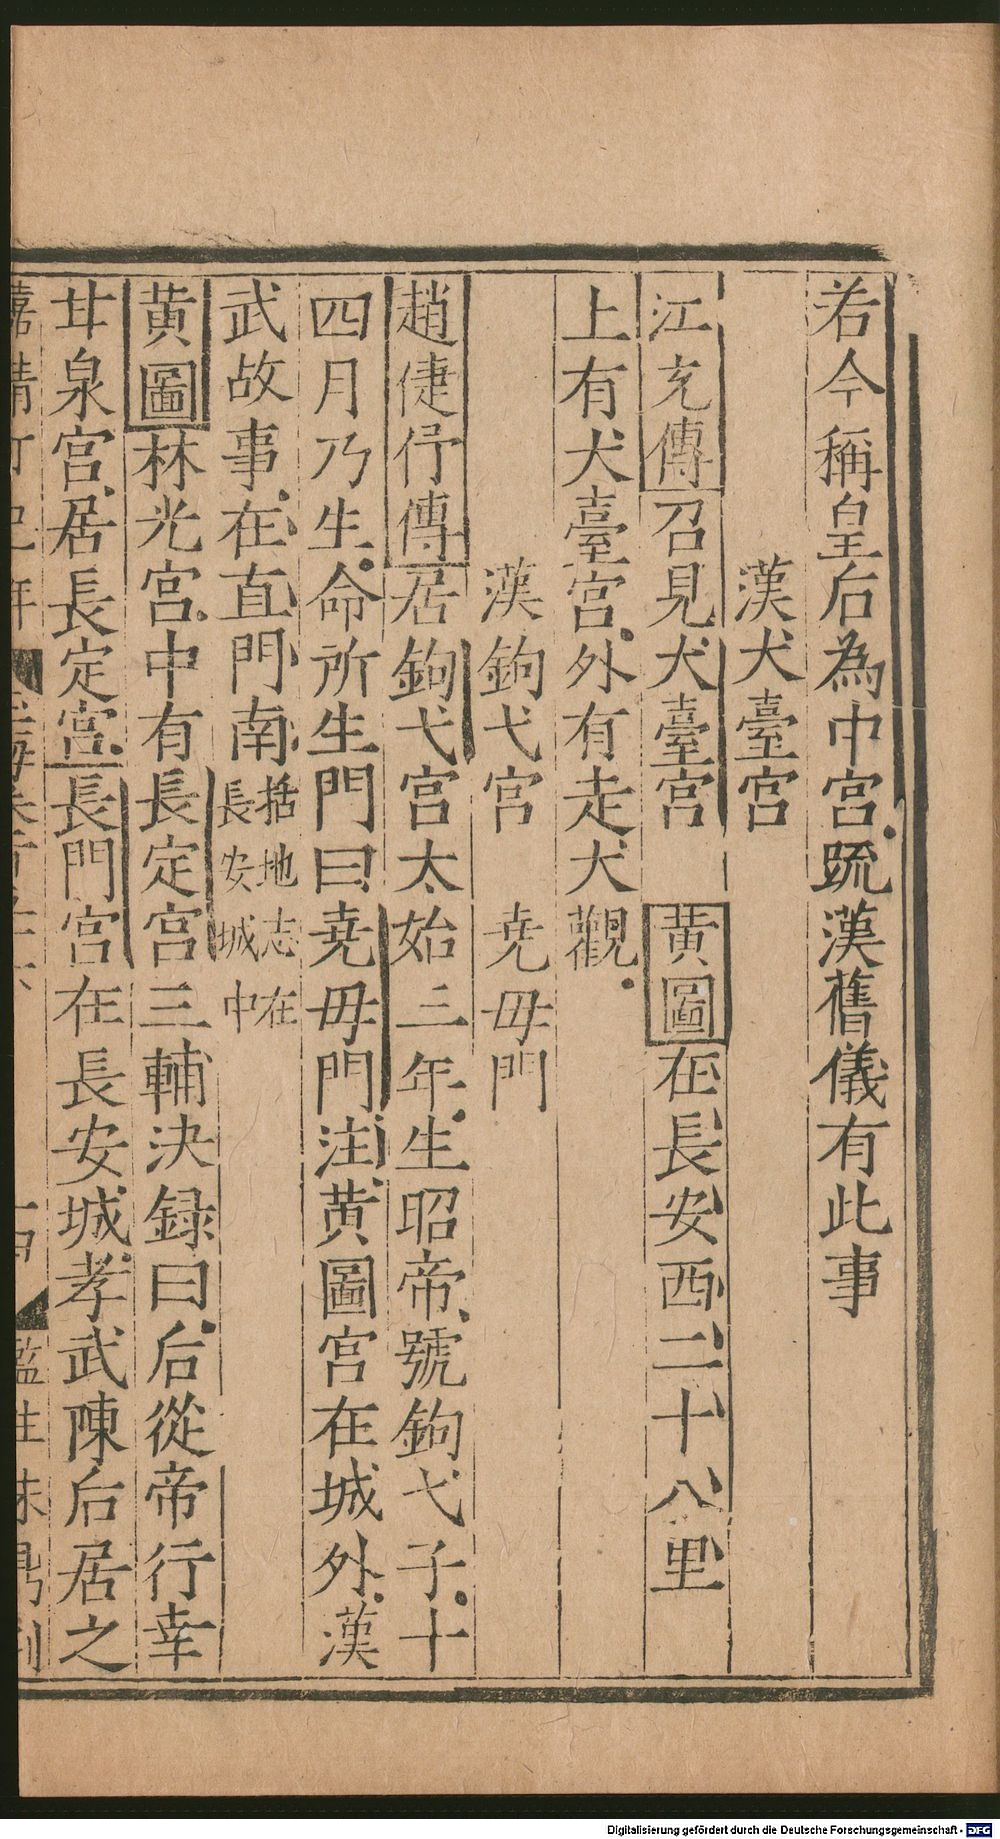 若今稱皇后為中宮䟽漢舊儀有此事
漢犬臺宮
江充傳召見犬臺宮 黃圖在長安西二十八里
上有犬臺宮外有走犬觀
漢鉤弋宮 堯母門
趙倢伃傳居鉤弋宮太始三年生昭帝號鉤弋子十
四月乃生命所生門曰堯母門注黃圖宮在城外漢
武故事在直門南括地志在
長安城中
黃圖林光宮中有長定宮三輔決録曰后從帝行幸
甘泉宮居長定宮長門宮在長安城孝武陳后居之
嘉靖 年
Digitalisierung gefördert durch die Deutsche Forschungsgemeinschaft - DFG